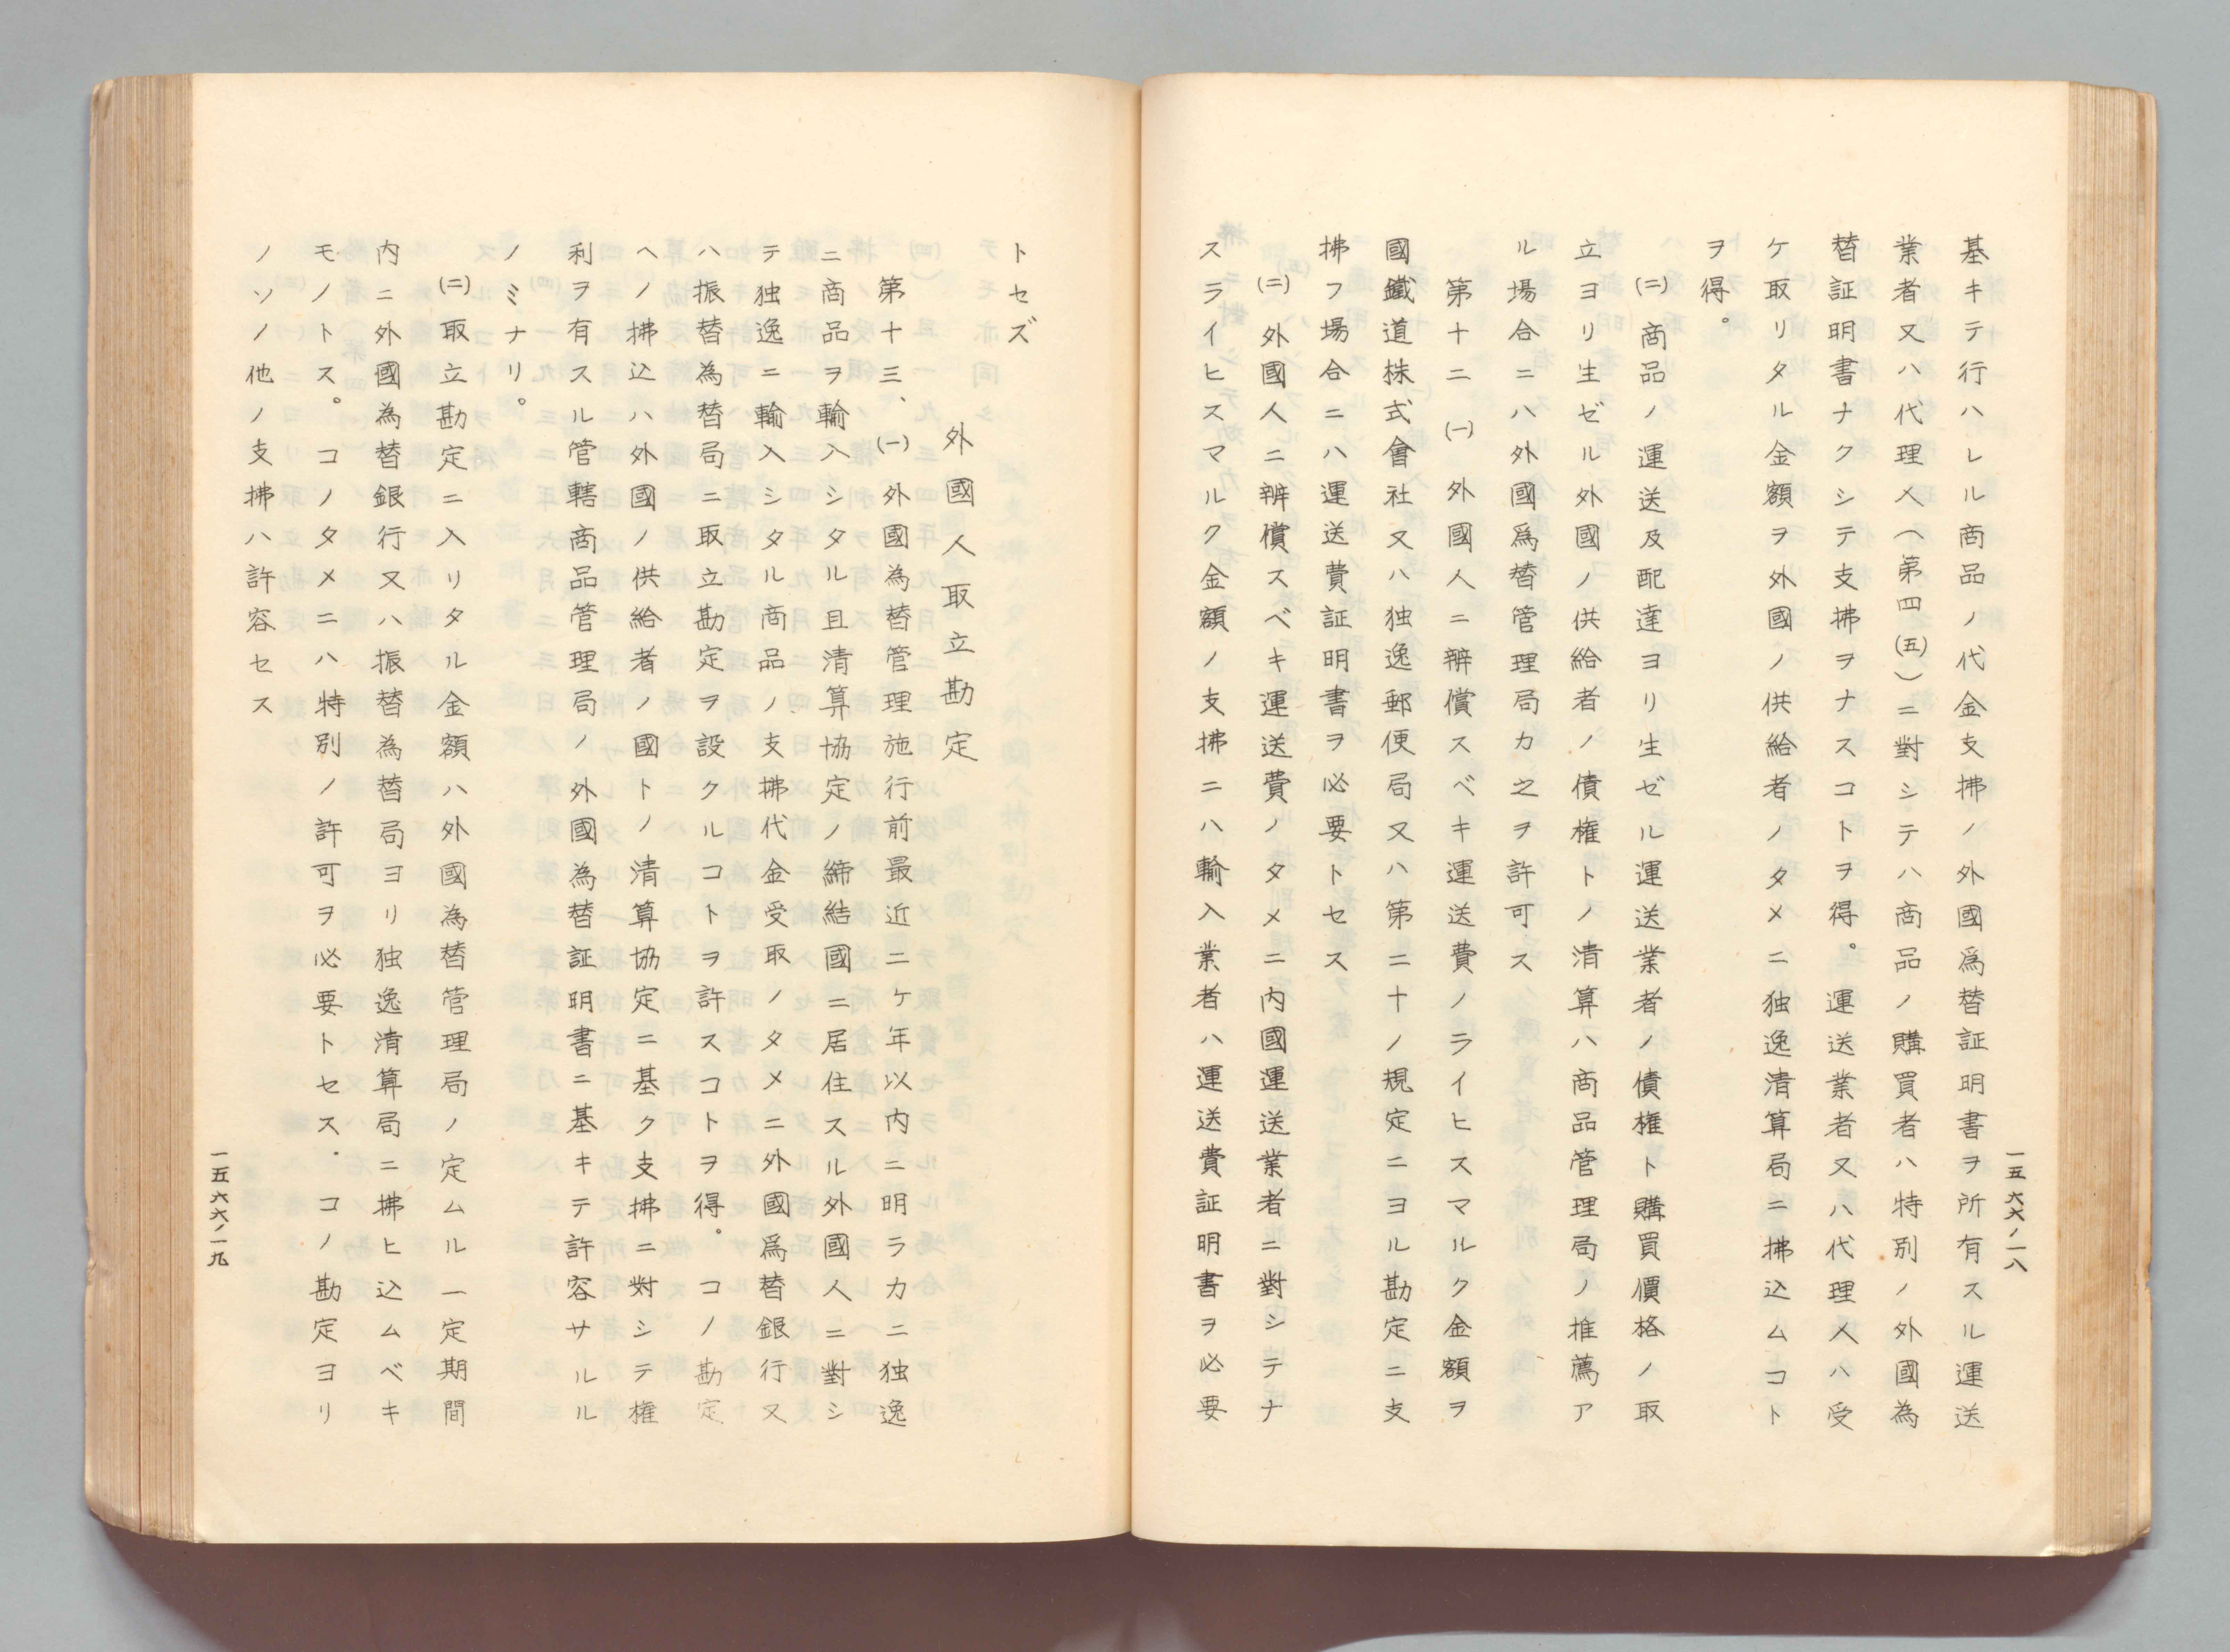 基キテ行ハレル商品ノ代金支拂ノ外國爲替証明書ヲ所有スル運送
業者又ハ代理人(第四㈤)ニ對シテハ商品ノ購買者ハ特別ノ外國為
替証明書ナクシテ支拂ヲナスコトヲ得。運送業者又ハ代理人ハ受
ケ取リタル金額ヲ外國ノ供給者ノタメニ独逸清算局ニ拂込ムコト
ヲ得。
㈡商品ノ運送及配達ヨリ生ゼル運送業者ノ債権ト購買價格ノ取
立ヨリ生ゼル外國ノ供給者ノ債権トノ清算ハ商品管理局ノ推薦ア
ル場合ニハ外國爲替管理局カ之ヲ許可ス
第十二㈠外國人ニ辨償スベキ運送費ノライヒスマルク金額ヲ
國鐵道株式會社又ハ独逸郵便局又ハ第二十ノ規定ニヨル勘定ニ支
拂フ場合ニハ運送費証明書ヲ必要トセス
㈡外國人ニ辨償スベキ運送費ノタメニ内國運送業者ニ對シテナ
スライヒスマルク金額ノ支拂ニハ輸入業者ハ運送費証明書ヲ必要
一五六六ノ一八
トセズ
外國人取立勘定
第十三、㈠外國為替管理施行前最近二ヶ年以内ニ明ラカニ独逸
ニ商品ヲ輸入シタル且清算協定ノ締結國ニ居住スル外國人ニ對シ
テ独逸ニ輸入シタル商品ノ支拂代金受取ノタメニ外國爲替銀行又
ハ振替為替局ニ取立勘定ヲ設クルコトヲ許スコトヲ得。コノ勘定
ヘノ拂込ハ外國ノ供給者ノ國トノ清算協定ニ基ク支拂ニ対シテ権
利ヲ有スル管轄商品管理局ノ外國為替証明書ニ基キテ許容サルル
ノミナリ。
㈡取立勘定ニ入リタル金額ハ外國為替管理局ノ定ムル一定期間
内ニ外國為替銀行又ハ振替為替局ヨリ独逸清算局ニ拂ヒ込ムベキ
モノトス。コノタメニハ特別ノ許可ヲ必要トセス.コノ勘定ヨリ
ノソノ他ノ支拂ハ許容セス
一五六六ノ一九